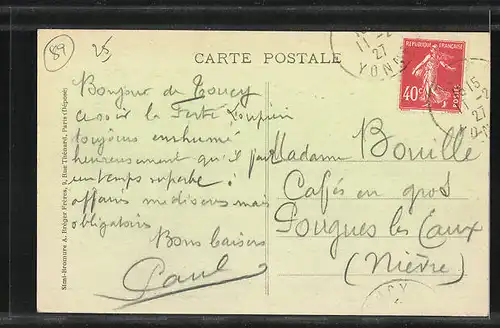 89
25
CARTE POSTALE
RÉPUBLIQUE FRANÇAISE
40c
POSTES
YONNE
27
15
27
Bonjour de Toucy
ce soir la Ferté Loupière
toujours enrhumé
heureusement qu'il fait
un temps superbe
affaires médiocres mais
obligatoires
Bons baisers
Paul
Madame Bouille
Cafés en gros
Pougues les Eaux
(Nièvre)
Simi-Bromure A. Breger Frères, 9, Rue Thénard, Paris (Déposé)